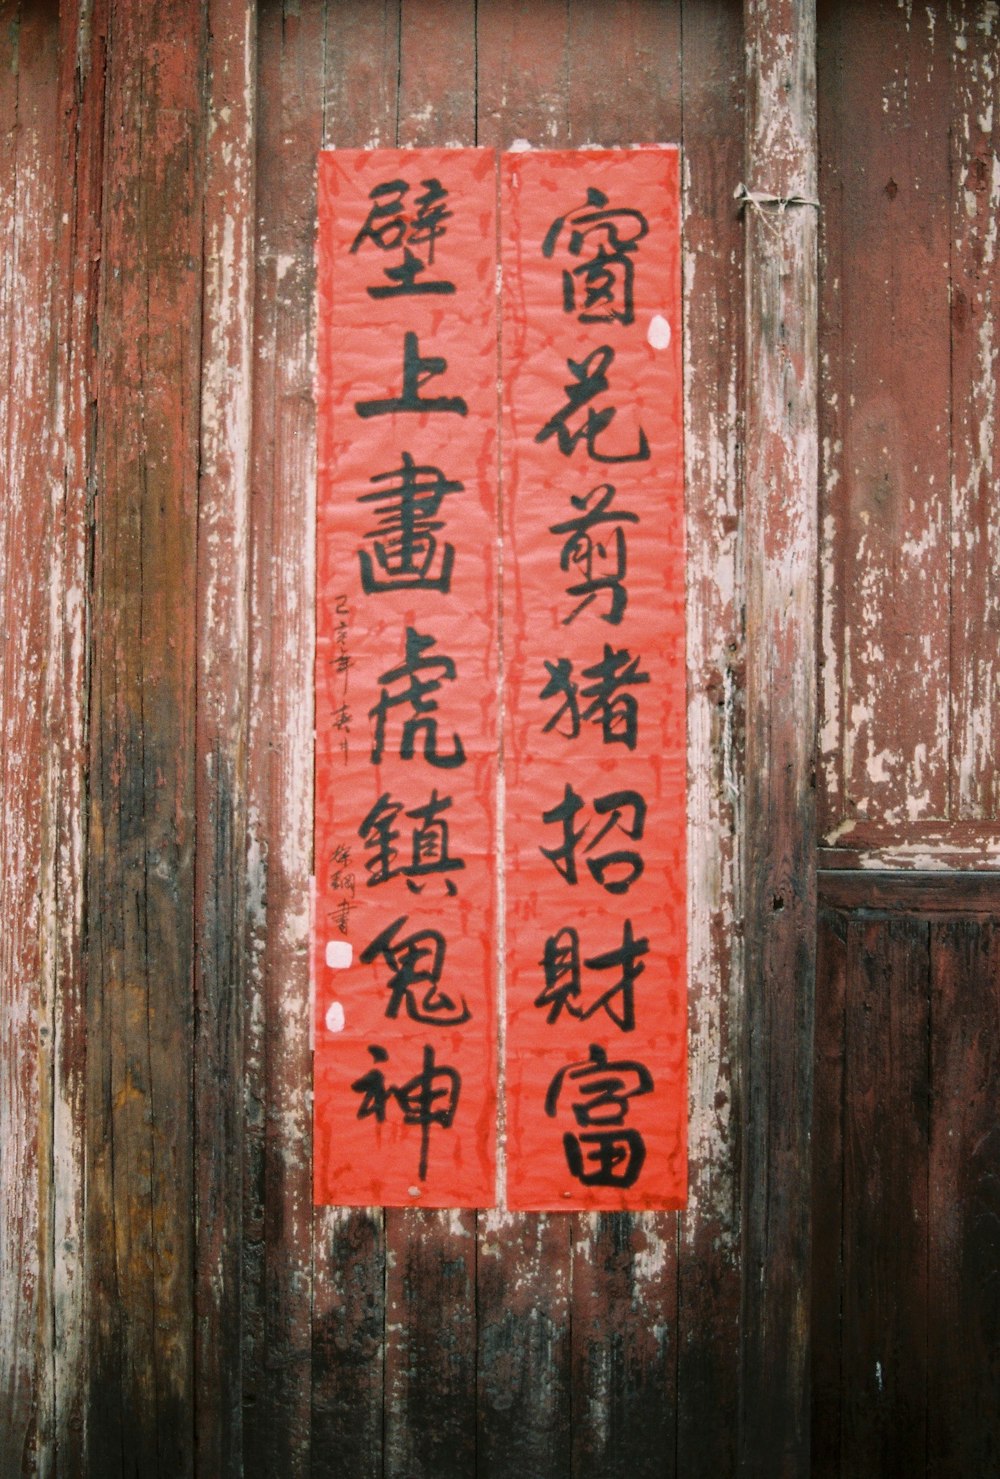 窗花剪猪招財富
壁上畫虎鎮鬼神
己亥年春月
徐鋼書